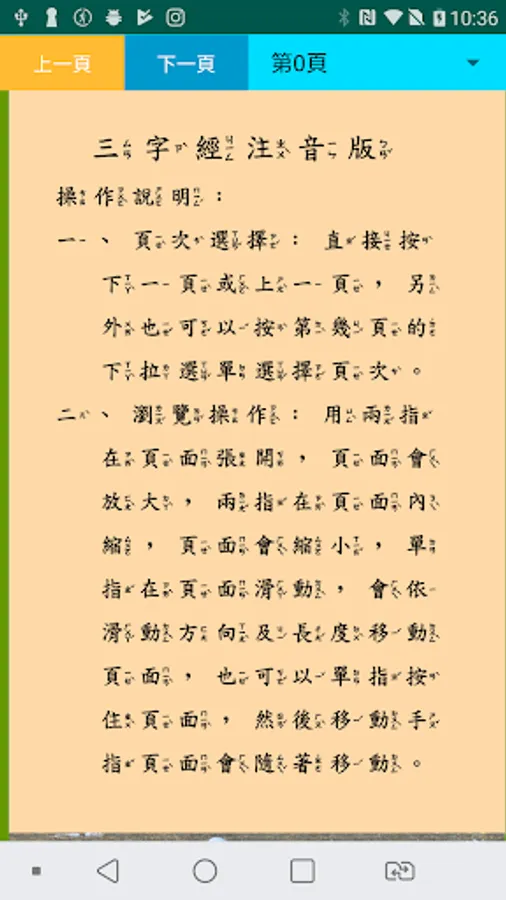 10:36
上一頁 下一頁 第0頁
三字經注音版
操作說明：
一、頁次選擇：直接按
下一頁或上一頁，另
外也可以按第幾頁的
下拉選單選擇頁次。
二、瀏覽操作：用兩指
在頁面張開，頁面會
放大，兩指在頁面內
縮，頁面會縮小，單
指在頁面滑動，會依
滑動方向及長度移動
頁面，也可以單指按
住頁面，然後移動手
指頁面會隨著移動。